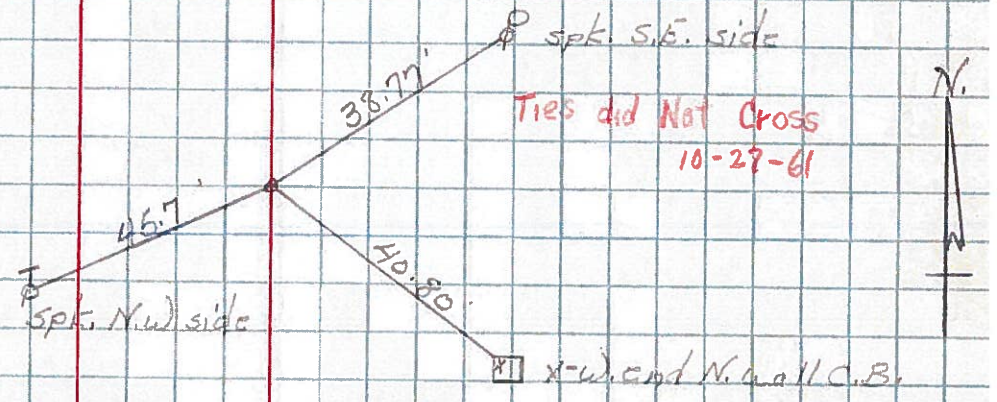 P
spk. S.E. side
38.77'
N.
Ties did Not Cross
10-27-61
45.7'
40.80'
T
spk. N.W. side
x
x-w. end N. wall C.B.